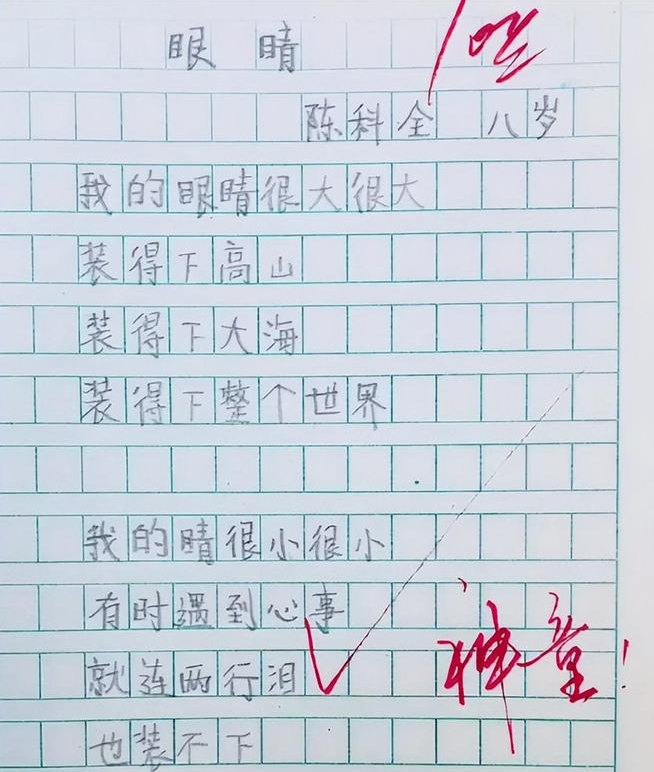 眼睛
陈科全 八岁
我的眼睛很大很大
装得下高山
装得下大海
装得下整个世界
我的睛很小很小
有时遇到心事
就连两行泪
也装不下
神童!